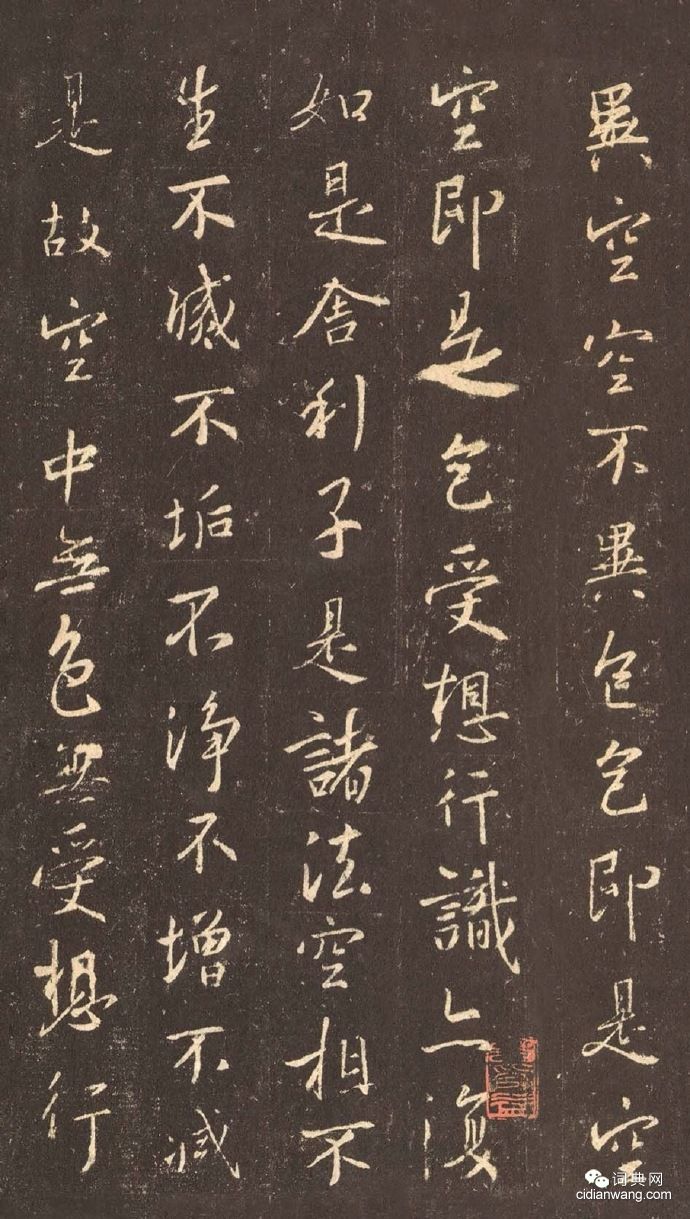 異空空不異色色即是空
空即是色受想行識亦復
如是舍利子是諸法空相不
生不滅不垢不淨不增不減
是故空中無色無受想行
词典网
cidianwang.com